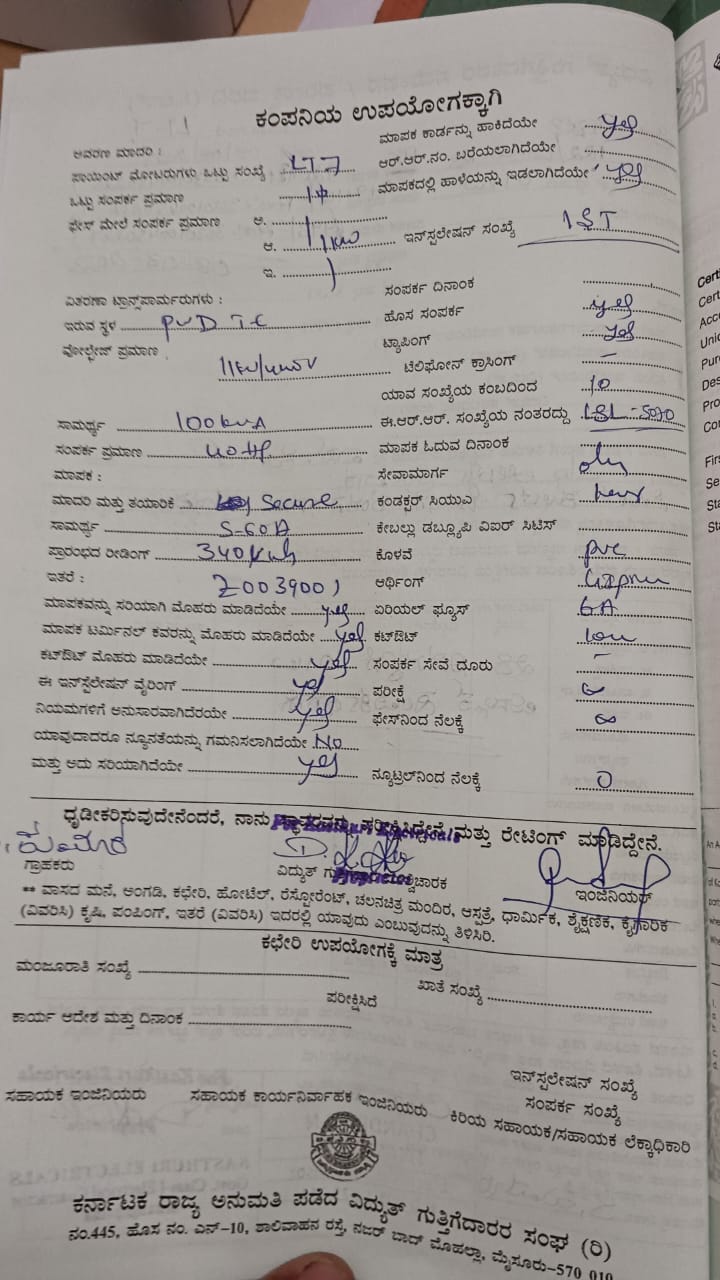 ಕಂಪನಿಯ ಉಪಯೋಗಕ್ಕಾಗಿ
ಆವರಣ ಮಾದರಿ : ಮಾಪಕ ಕಾರ್ಡನ್ನು ಹಾಕಿದೆಯೇ yes
ಪಾಯಿಂಟ್ ಮೋಟರುಗಳು ಒಟ್ಟು ಸಂಖ್ಯೆ LT7 ಆರ್.ಆರ್.ನಂ. ಬರೆಯಲಾಗಿದೆಯೇ
ಒಟ್ಟು ಸಂಪರ್ಕ ಪ್ರಮಾಣ 1ϕ ಮಾಪಕದಲ್ಲಿ ಹಾಳೆಯನ್ನು ಇಡಲಾಗಿದೆಯೇ yes
ಫೇಸ್ ಮೇಲೆ ಸಂಪರ್ಕ ಪ್ರಮಾಣ ಅ.
ಆ. 1KW ಇನ್‌ಸ್ಟಲೇಷನ್ ಸಂಖ್ಯೆ 1ST
ಇ.
ವಿತರಣಾ ಟ್ರಾನ್ಸ್‌ಪಾರ್ಮರುಗಳು : ಸಂಪರ್ಕ ದಿನಾಂಕ
ಇರುವ ಸ್ಥಳ PWD TC ಹೊಸ ಸಂಪರ್ಕ yes
ವೋಲ್ಟೇಜ್ ಪ್ರಮಾಣ 11KV/440V ಟ್ಯಾಪಿಂಗ್ yes
ಟೆಲಿಫೋನ್ ಕ್ರಾಸಿಂಗ್ –
ಯಾವ ಸಂಖ್ಯೆಯ ಕಂಬದಿಂದ 10
ಸಾಮರ್ಥ್ಯ 100KVA ಈ.ಆರ್.ಆರ್. ಸಂಖ್ಯೆಯ ನಂತರದ್ದು
ಸಂಪರ್ಕ ಪ್ರಮಾಣ 40HP ಮಾಪಕ ಓದುವ ದಿನಾಂಕ
ಮಾಪಕ : ಸೇವಾಮಾರ್ಗ
ಮಾದರಿ ಮತ್ತು ತಯಾರಿಕೆ Secure ಕಂಡಕ್ಟರ್ ಸಿಯುಎ
ಸಾಮರ್ಥ್ಯ 5-60A ಕೇಬಲ್ಲು ಡಬ್ಲ್ಯೂಪಿ ವಿಐಆರ್ ಸಿಟಿಸ್
ಪ್ರಾರಂಭದ ರೀಡಿಂಗ್ 340Kwh ಕೊಳವೆ pvc
ಇತರೆ : Z0039001 ಆರ್ಥಿಂಗ್
ಮಾಪಕವನ್ನು ಸರಿಯಾಗಿ ಮೊಹರು ಮಾಡಿದೆಯೇ yes ಏರಿಯಲ್ ಫ್ಯೂಸ್ 6A
ಮಾಪಕ ಟರ್ಮಿನಲ್ ಕವರನ್ನು ಮೊಹರು ಮಾಡಿದೆಯೇ yes ಕಟ್ಔಟ್
ಕಟ್ಔಟ್ ಮೊಹರು ಮಾಡಿದೆಯೇ yes ಸಂಪರ್ಕ ಸೇವೆ ದೂರು –
ಈ ಇನ್‌ಸ್ಟೆಲೇಷನ್ ವೈರಿಂಗ್ yes ಪರೀಕ್ಷೆ ∞
ನಿಯಮಗಳಿಗೆ ಅನುಸಾರವಾಗಿದೆರೆಯೇ yes ಫೇಸ್‌ನಿಂದ ನೆಲಕ್ಕೆ ∞
ಯಾವುದಾದರೂ ನ್ಯೂನತೆಯನ್ನು ಗಮನಿಸಲಾಗಿದೆಯೇ No
ಮತ್ತು ಅದು ಸರಿಯಾಗಿದೆಯೇ yes ನ್ಯೂಟ್ರಲ್‌ನಿಂದ ನೆಲಕ್ಕೆ 0
ಧೃಡೀಕರಿಸುವುದೇನೆಂದರೆ, ನಾನು ಪರೀಕ್ಷಿಸಿದ್ದೇನೆ ಮತ್ತು ರೇಟಿಂಗ್ ಮಾಡಿದ್ದೇನೆ.
ಗ್ರಾಹಕರು ವಿದ್ಯುತ್ ಇಂಜಿನಿಯರ್
** ವಾಸದ ಮನೆ, ಅಂಗಡಿ, ಕಛೇರಿ, ಹೋಟೆಲ್, ರೆಸ್ಟೋರೆಂಟ್, ಚಲನಚಿತ್ರ ಮಂದಿರ, ಆಸ್ಪತ್ರೆ, ಧಾರ್ಮಿಕ, ಶೈಕ್ಷಣಿಕ, ಕೈಗಾರಿಕ
(ವಿವರಿಸಿ) ಕೃಷಿ, ಪಂಪಿಂಗ್, ಇತರೆ (ವಿವರಿಸಿ) ಇದರಲ್ಲಿ ಯಾವುದು ಎಂಬುವುದನ್ನು ತಿಳಿಸಿರಿ.
ಕಛೇರಿ ಉಪಯೋಗಕ್ಕೆ ಮಾತ್ರ
ಮಂಜೂರಾತಿ ಸಂಖ್ಯೆ ಖಾತೆ ಸಂಖ್ಯೆ
ಪರೀಕ್ಷಿಸಿದೆ
ಕಾರ್ಯ ಆದೇಶ ಮತ್ತು ದಿನಾಂಕ
ಇನ್‌ಸ್ಟಲೇಷನ್ ಸಂಖ್ಯೆ
ಸಂಪರ್ಕ ಸಂಖ್ಯೆ
ಸಹಾಯಕ ಇಂಜಿನಿಯರು ಸಹಾಯಕ ಕಾರ್ಯನಿರ್ವಾಹಕ ಇಂಜಿನಿಯರು ಕಿರಿಯ ಸಹಾಯಕ/ಸಹಾಯಕ ಲೆಕ್ಕಾಧಿಕಾರಿ
ಕರ್ನಾಟಕ ರಾಜ್ಯ ಅನುಮತಿ ಪಡೆದ ವಿದ್ಯುತ್ ಗುತ್ತಿಗೆದಾರರ ಸಂಘ (ರಿ)
ನಂ.445, ಹೊಸ ನಂ. ಎನ್-10, ಶಾಲಿವಾಹನ ರಸ್ತೆ, ನಜರ್ ಬಾದ್ ಮೊಹಲ್ಲಾ, ಮೈಸೂರು-570 010